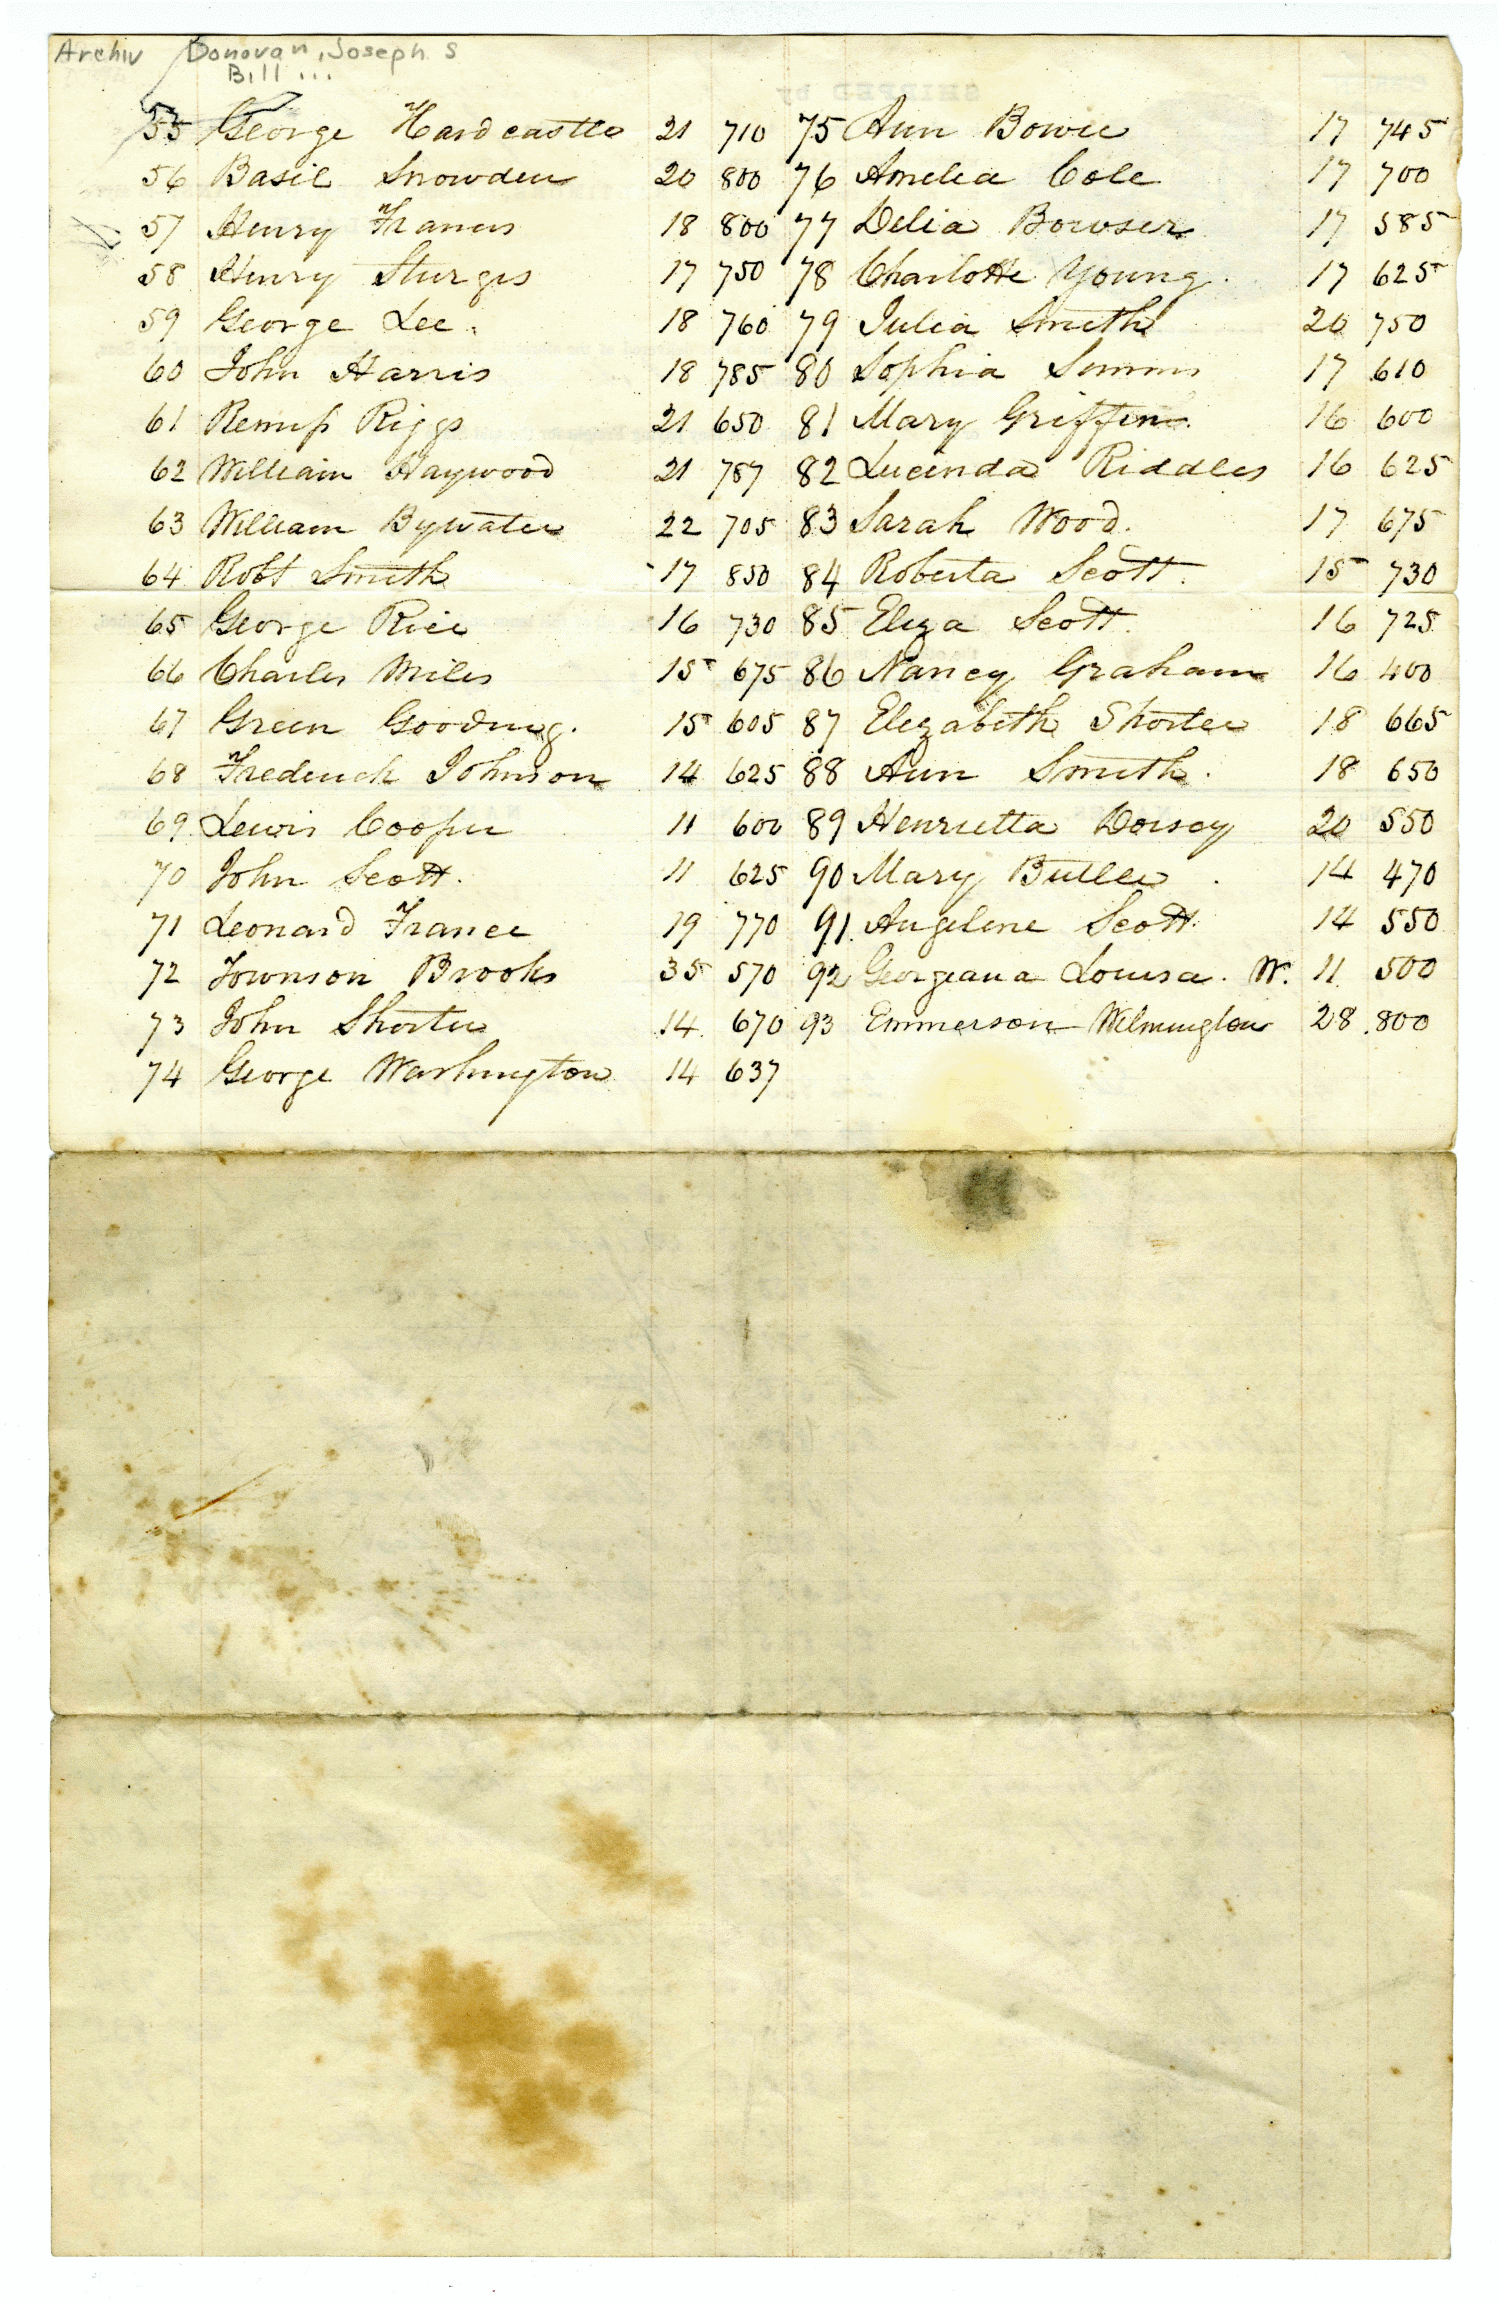 Archiv Donovan, Joseph S
Bill ...
SHIPPED by
55 George Hardcastle 21 710 75 Ann Bowie 17 745
56 Basil Snowden 20 800 76 Amelia Cole 17 700
57 Henry Francis 18 800 77 Delia Bowser 17 585
58 Henry Sturges 17 750 78 Charlotte Young. 17 625
59 George Lee. 18 760 79 Julia Smith 20 750
60 John Harris 18 785 80 Sophia Simms 17 610
61 Remus Riggs 21 650 81 Mary Griffin. 16 600
62 William Haywood 21 787 82 Lucinda Riddles 16 625
63 William Bywater 22 705 83 Sarah Wood. 17 675
64 Robt Smith 17 850 84 Roberta Scott. 15 730
65 George Rice 16 730 85 Eliza Scott. 16 725
66 Charles Miles 15 675 86 Nancy Graham 16 400
67 Green Gooding. 15 605 87 Elizabeth Shorter 18 665
68 Frederick Johnson 14 625 88 Ann Smith. 18 650
69 Lewis Cooper 11 600 89 Henrietta Dorsey 20 550
70 John Scott. 11 625 90 Mary Butler. 14 470
71 Leonard France 19 770 91. Angelene Scott. 14 550
72 Townson Brooks 35 570 92 Georgeana Louisa. W. 11 500
73 John Shorter 14. 670 93 Emmerson Wilmington 28 .800
74 George Washington 14 637